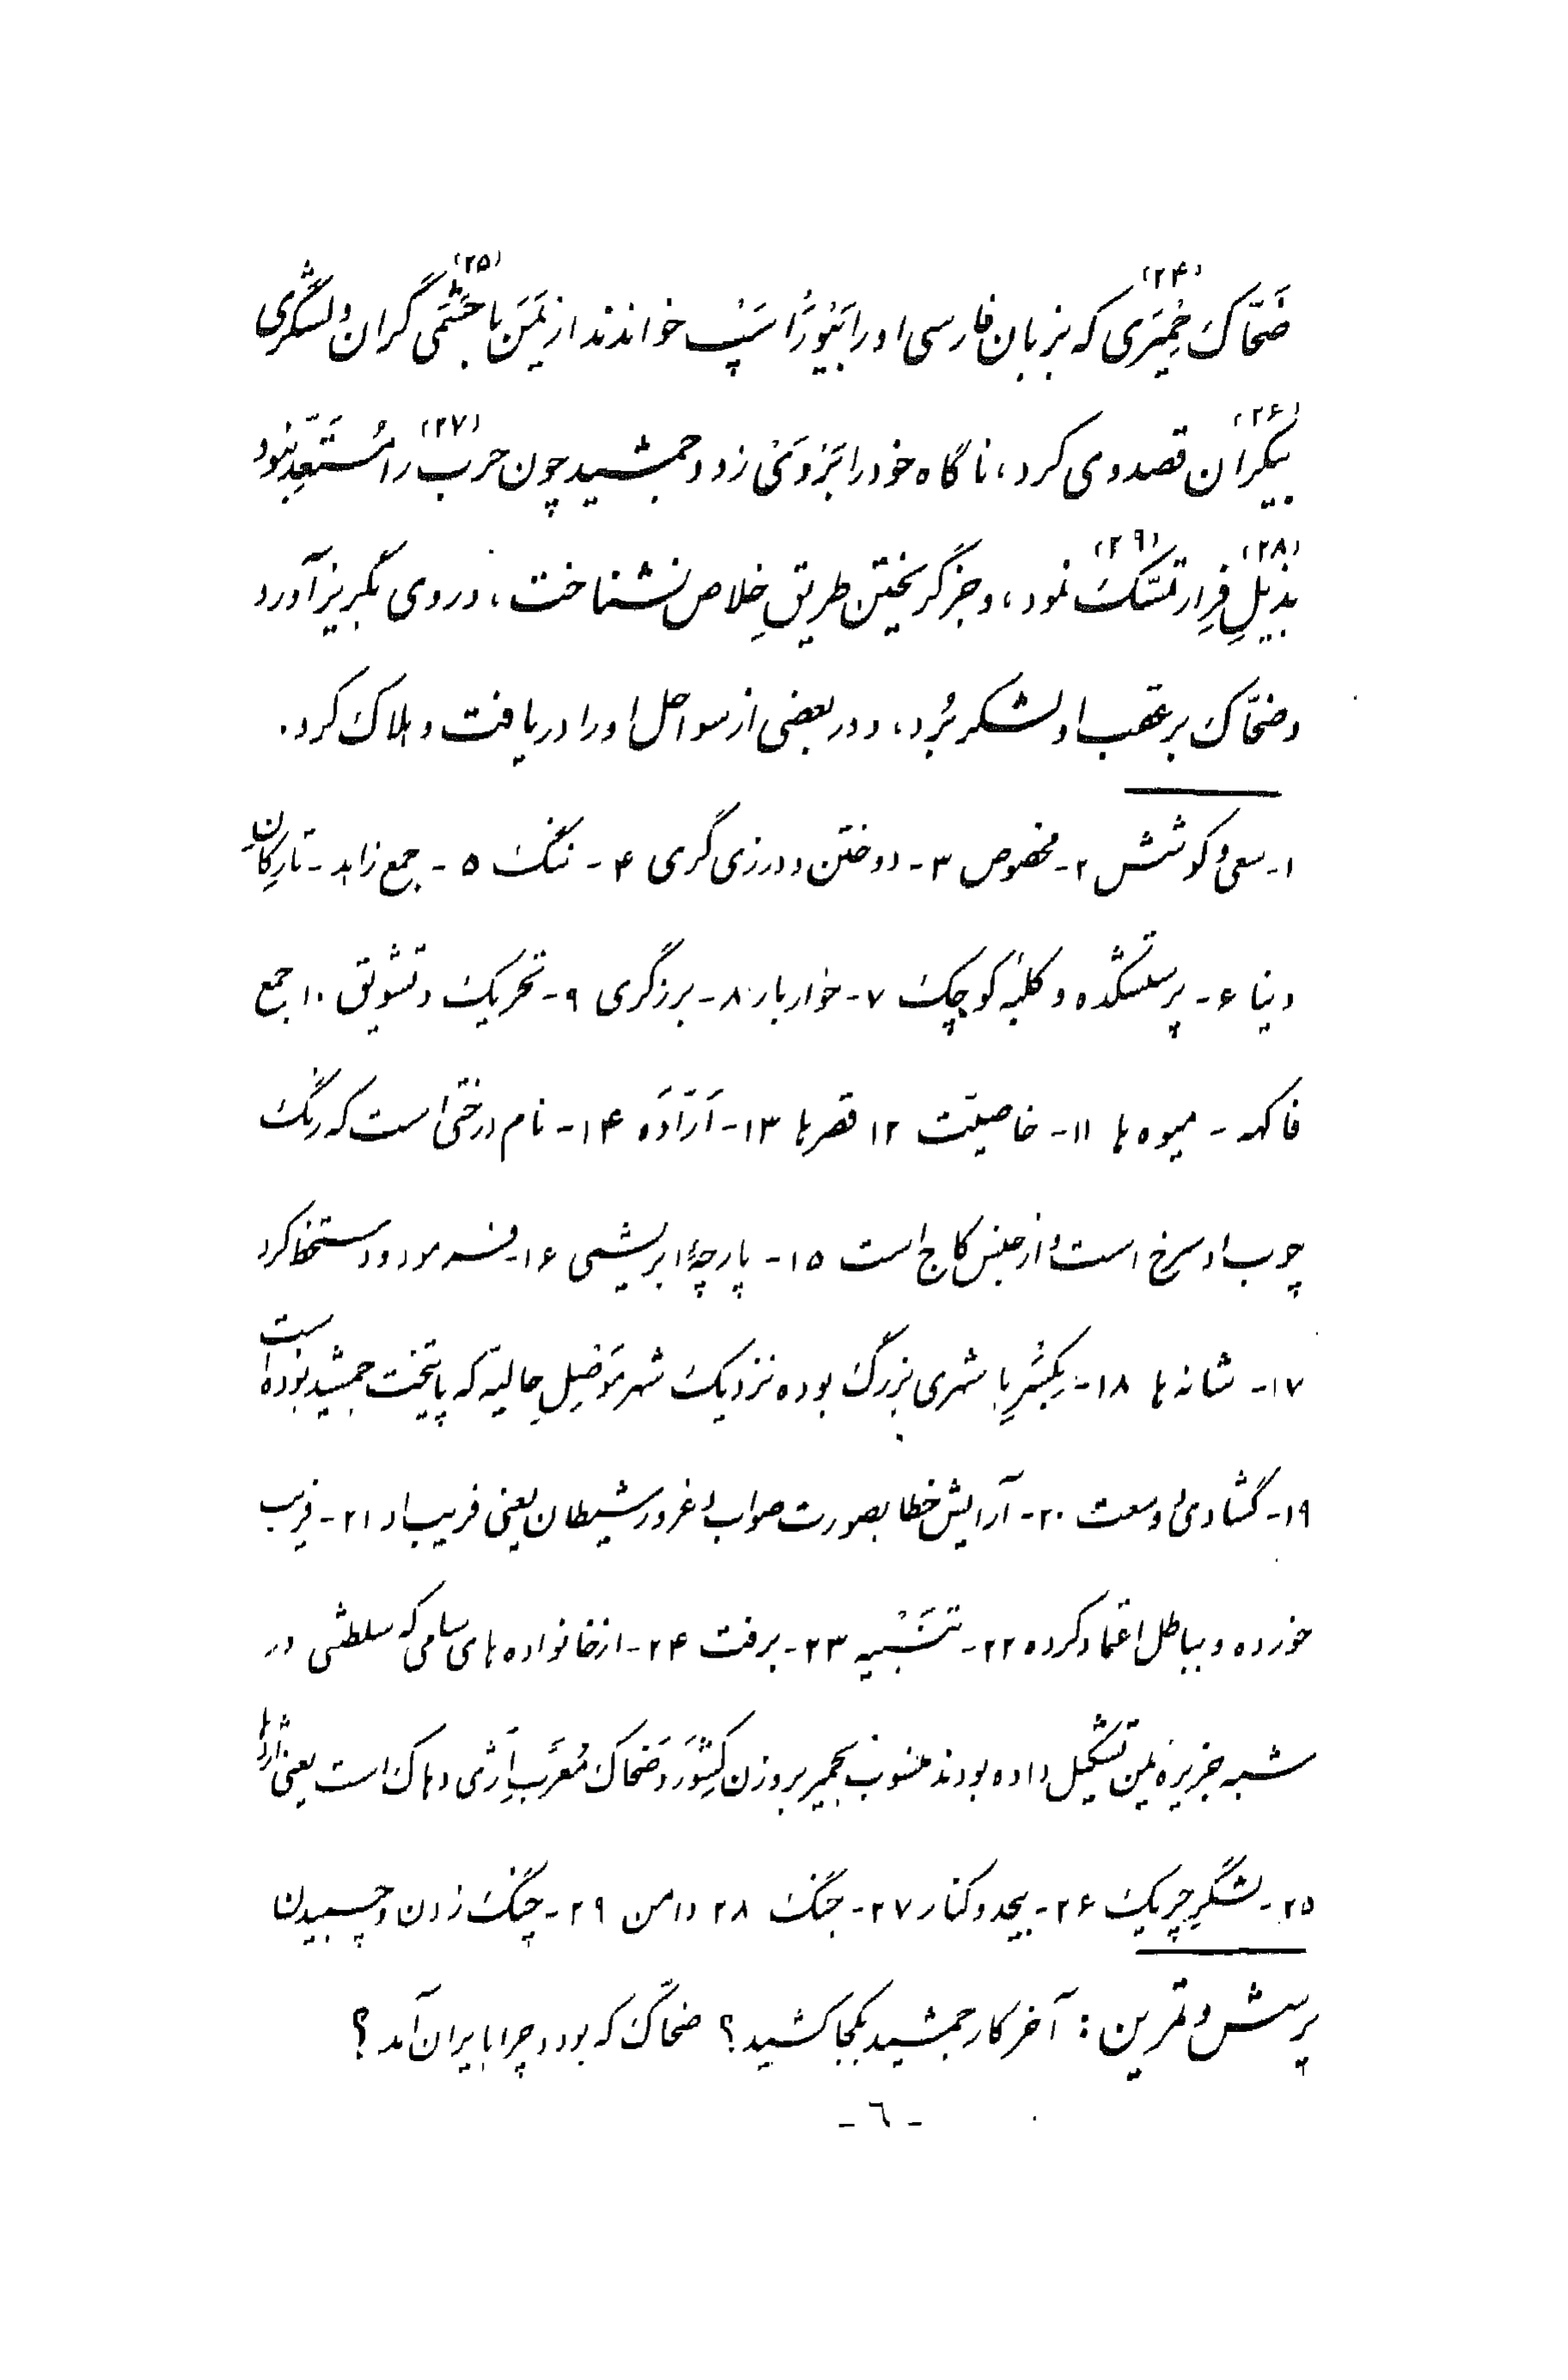 ضَحّاک حِمْیَری (۲۴) که بزبان فارسی او را بَیْوَراَسَپْ خواندند از یَمَن با حَشَمی (۲۵) گران و لشگری
بیکران (۲۶) قصد وی کرد، ناگاه خود را بَرْوَیْ زد و جمشید چون حرب (۲۷) را مُسْتَعِدّ نبود
بذیلِ (۲۸) فِرار تمسّک (۲۹) نمود، و جز گریختن طریقِ خلاص نشناخت، و روی بگریز آورد
و ضحّاک بر عقب او لشکر بُرد، و در بعضی از سواحل او را دریافت و هلاک کرد.
۱- سعی و کوشش ۲- مخصوص ۳- دوختن و درزی گری ۴- ننگ ۵- جمع زاهد - تارِکانِ
دنیا ۶- پرستشکده و کلبهٔ کوچک ۷- خواربار ۸- برزگری ۹- تحریک و تشویق ۱۰ جمع
فاکهه - میوه ها ۱۱- خاصیّت ۱۲ قصرها ۱۳- اَرّادَه ۱۴- نام درختی است که رنگ
چوب او سرخ است و از جنس کاج است ۱۵- پارچهٔ ابریشمی ۱۶- فرمود و دستخط کرد
۱۷- شانه ها ۱۸- شهری بزرگ بوده نزدیک شهر مَوصِلِ حالیّه که پایتخت جمشید بوده است
۱۹- گشادی و وسعت ۲۰- آرایش خطا بصورت صواب و غرور شیطان یعنی فریب او ۲۱- فریب
خورده و بباطل اعتماد کرده ۲۲- تَنْبیه ۲۳- برفت ۲۴- از خانواده های سامی که سلطنتی در
شبه جزیره یمن تشکیل داده بودند منسوب بحمیر بروزن کِشْوَر و ضحّاک مُعَرَّب اَژی دهاک است یعنی اژدها
۲۵- لشگرِ چریک ۲۶- بیحد و کنار ۲۷- جنگ ۲۸ دامن ۲۹- چنگ زدن و چسبیدن
پرسش و تمرین : آخر کار جمشید بکجا کشید؟ ضحّاک که بود و چرا با ایران آمد؟
- ٦ -